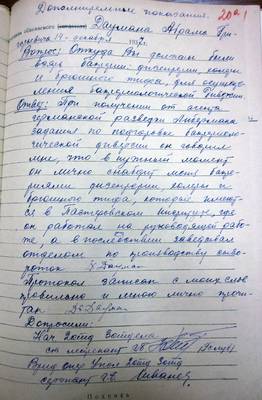 Дополнительные показания.
20а
Даумана Абрама Гри-
горьевича 14 декабря 193 г.
Вопрос: Откуда Вы должны были
взять бактерии дизентерии холеры
и брюшного тифа, для осущест-
вления бактериологической диверсии
Ответ: При получении от агента
германской разведки
задания по подготовке бактериоло-
гической диверсии он говорил
мне, что в нужный момент
он лично снабдит меня бакте-
риями дизентерии холеры и
брюшного тифа, которые имеют-
ся в Пастеровском институте где
он работал на руководящей рабо-
те, а в последствии заведывал
отделом по производству сыво-
роток
Протокол записан с моих слов
правильно и мною лично прочи-
тан
Допросили:
Нач 2 отд 3 отдела
лейтенант ГБ
2 отд 3 отд
сержант ГБ Иванов
Подпись